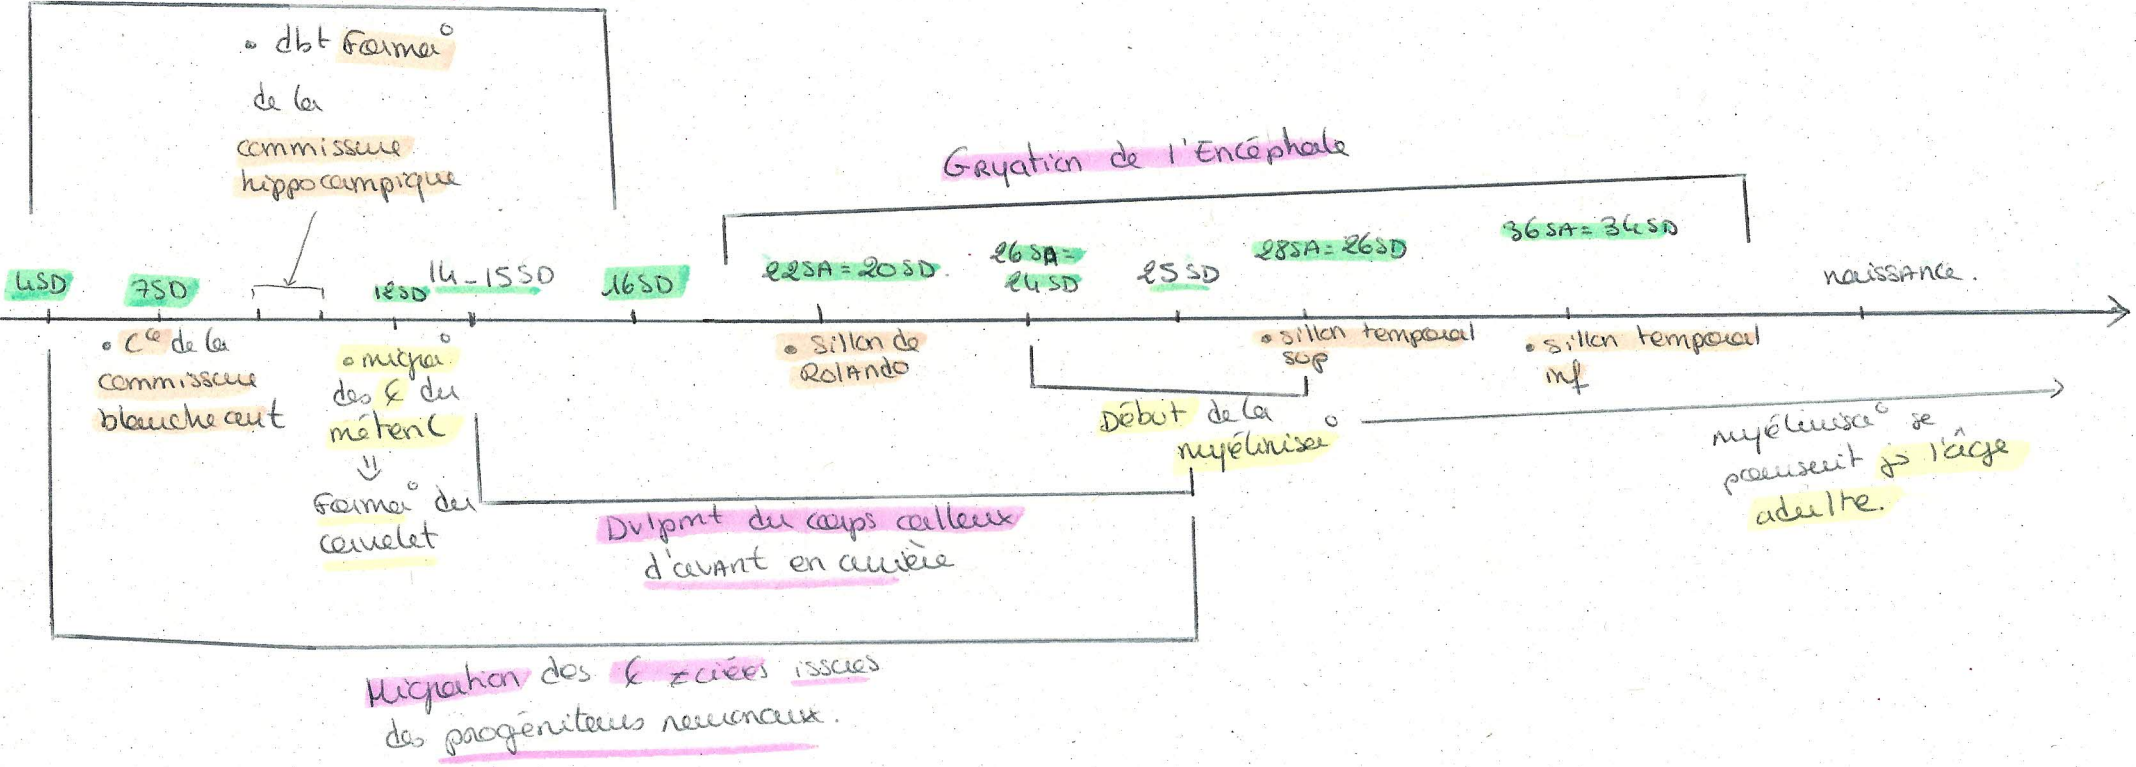 • dbt Forma°
de la
commissure
hippocampique
Gryation de l'Encéphale
4SD
7SD
12SD
14-15SD
16SD
22SA = 20SD
26SA =
24SD
25SD
28SA = 26SD
36SA = 34SD
naissance.
• Cce de la
commissure
blanche ant
• migra°
des ¢ du
métenC
⇓
Forma° du
cervelet
• sillon de
Rolando
• sillon temporal
sup
• sillon temporal
inf
Début de la
myélinisa°
myélinisa° se
poursuit js l'âge
adulte.
Dvlpmt du corps calleux
d'avant en arrière
Migration des ¢ issues
des progéniteurs neuronaux.